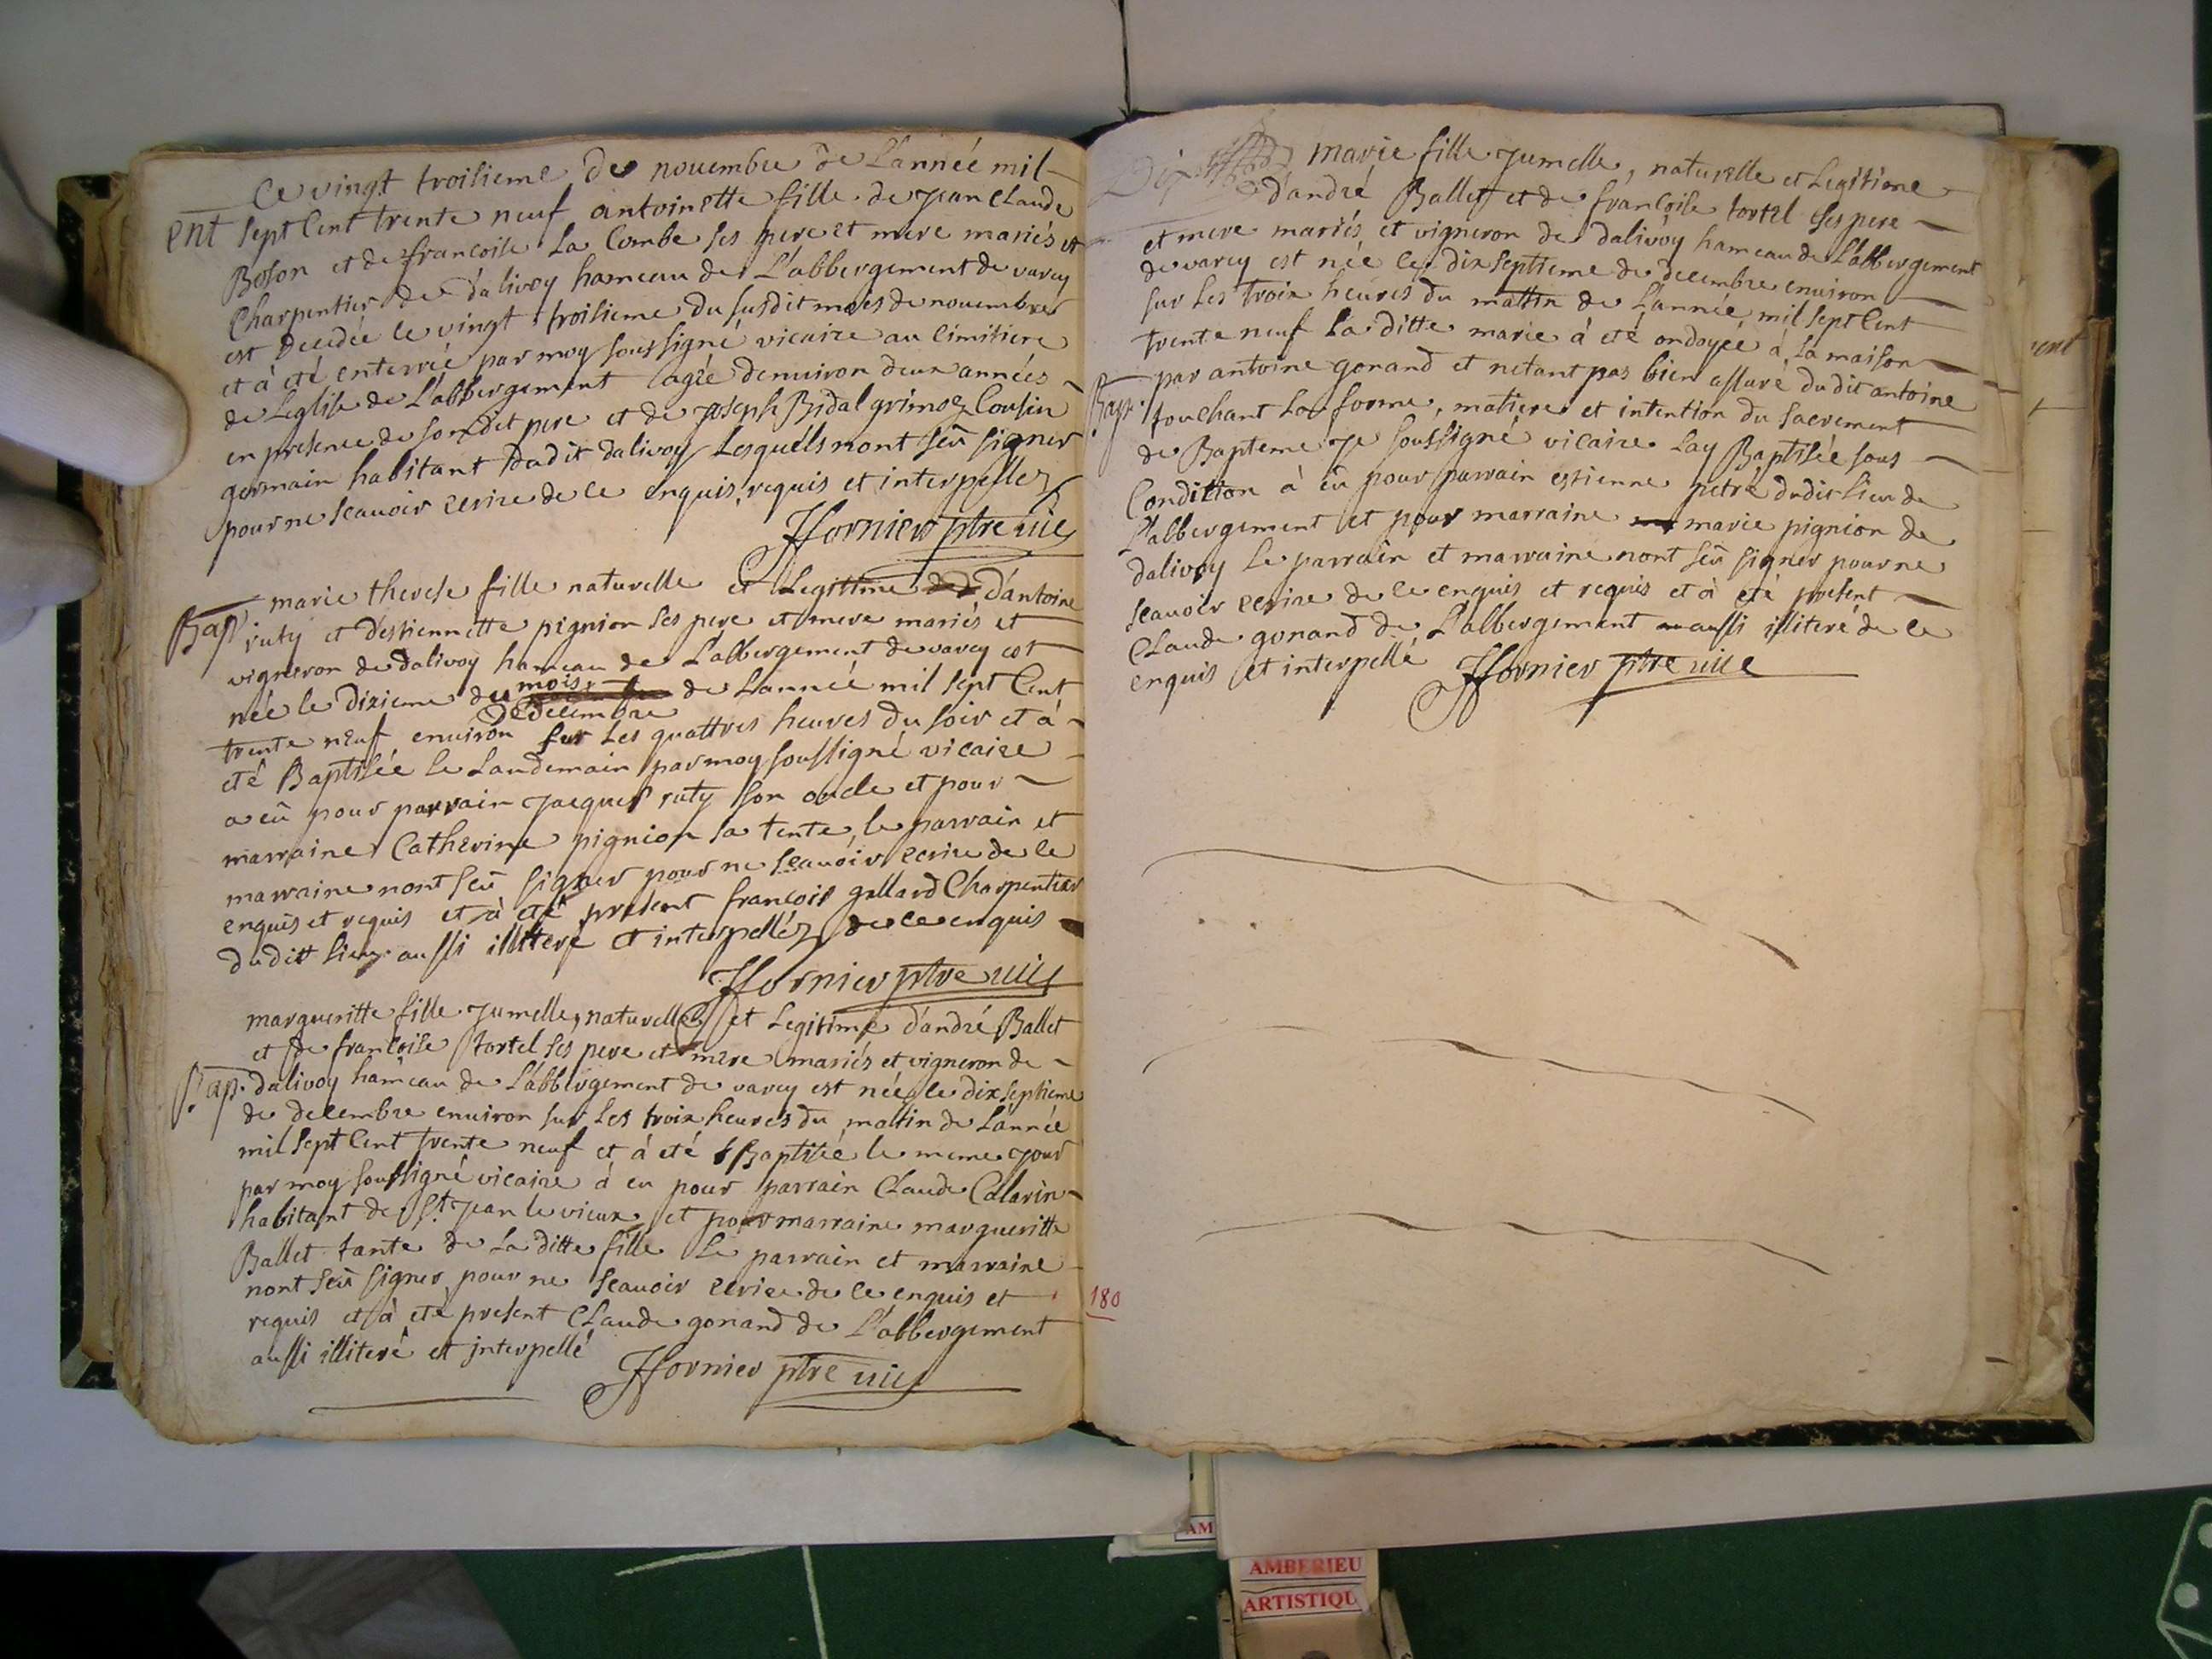 Ce vingt troisieme de novembre de L'année mil
ent sept Cent trente neuf antoinette fille de jean Claude
Boson et de francoise La Combe ses pere et mere mariés et
Charpentier de dalivoy hameau de L'abbergement de varey
est decedée le vingt troisieme du susdit mois de novembre
et à été enterrée par moy soussigné vicaire au cimitiere
de Leglise de L'abbergement agée denviron deux années
en presence de sondit pere et de joseph Bidal grimoz Cousin
germain habitant dudit dalivoy Lesquells nont seû signer
pour ne scauoir ecrire de ce enquis, requis et interpellez
ffornier ptre vic
Bap
marie therese fille naturelle et Legittime d'antoine
ruty et d'estiennette pignion ses pere et mere mariés et
vigneron de dalivoy hameau de L'abbergement de varey est
née le dixieme du mois de decembre de L'année mil sept Cent
trente neuf enuiron sur Les quattres heures du soir et à
eté Baptisée le Landemain par moy soussigné vicaire
a eû pour parrain jacques ruty son oncle et pour
marraine Catherine pignion sa tente, le parrain et
marraine nont seû signer pour ne scauoir ecrire de ce
enquis et requis et à eté present francois gallard Charpentier
dudit lieu aussi illiteré et interpelléz de ce enquis
ffornier ptre vic
margueritte fille jumelle, naturelle et Legitime d'andré Ballet
et de francoise tortel ses pere et mere mariés et vigneron de
Bap. dalivoy hameau de L'abbergement de varey est née le dix septieme
de decembre enuiron sur Les troix heures du mattin de L'année
mil sept Cent trente neuf et à eté Baptisée le meme jour
par moy soussigné vicaire à eu pour parrain Claude Calarin
habitant de St jean le vieux et pour marraine margueritte
Ballet tante de La ditte fille Le parrain et marraine
nont seû signer pour ne scauoir ecrire de ce enquis et
requis et à eté present Claude gonand de L'abbergement
aussi illiteré et interpellé
ffornier ptre vic
marie fille jumelle, naturelle et Legitime
d'andré Ballet et de francoise tortel ses pere
et mere mariés et vigneron de dalivoy hameau de L'abbergement
de varey est née le dix septieme de decembre enuiron
sur Les troix heures du mattin de L'année mil sept Cent
trente neuf La ditte marie à eté ondoyée à La maison
Bap. par antoine gonand et netant pas bien assuré dudit antoine
touchant La forme, matiere et intention du sacrement
de Bapteme je soussigné vicaire Lay Baptisée sous
Condition à eû pour parrain estienne petré dudit Lieu de
L'abbergement et pour marraine marie pignion de
dalivoy le parrain et marraine nont seû signer pour ne
scauoir ecrire de ce enquis et requis et à eté present
Claude gonand de L'abbergement aussi illiteré de ce
enquis et interpellé
ffornier ptre vice
180
AMBERIEU
ARTISTIQU